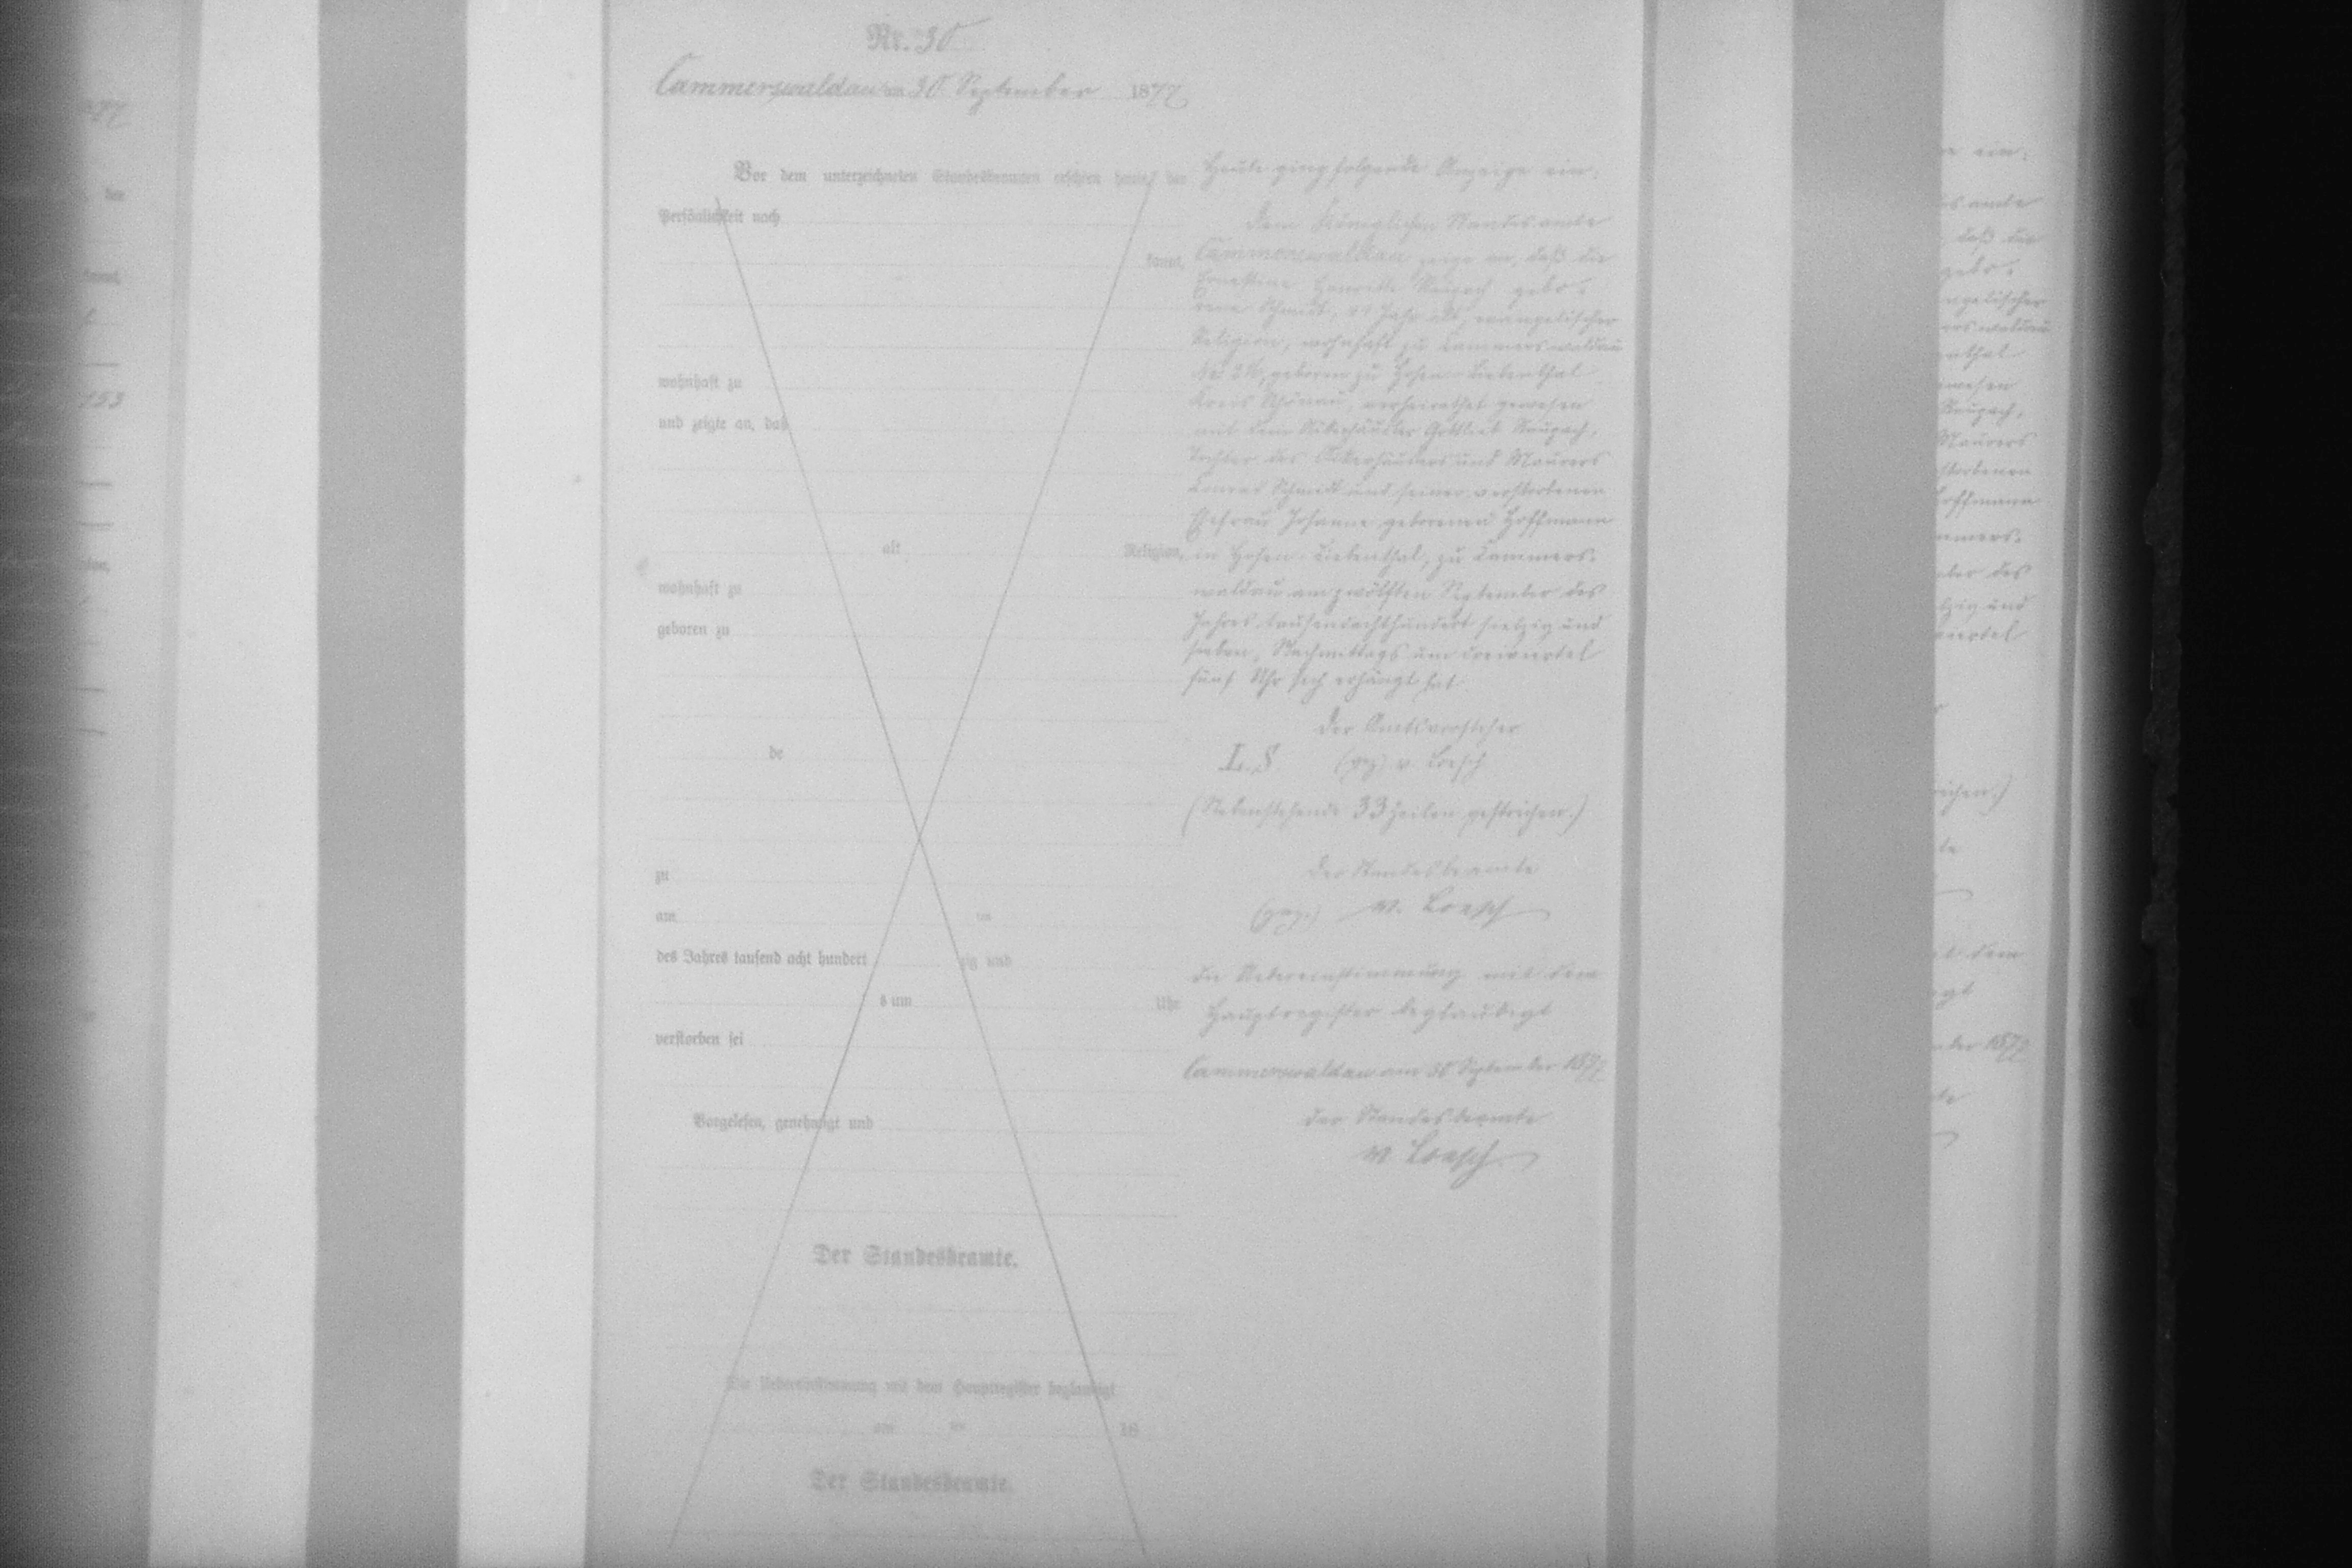 Nr. 30
Cammerswaldau am 30 September 1877
Vor dem unterzeichneten Standesbeamten erschien heute, der
Persönlichkeit nach
kannt,
wohnhaft zu
und zeigte an, daß
alt Religion,
wohnhaft zu
geboren zu
de
zu
am ten
des Jahres tausend acht hundert zig und
s um Uhr
verstorben sei
Vorgelesen, genehmigt und
Der Standesbeamte.
Die Uebereinstimmung mit dem Hauptregister beglaubigt
am ten 18
Der Standesbeamte.
Heute ging folgende Anzeige ein:
Dem Königlichen Standesamte
Cammerswaldau zeige an, daß die
Ernestine Henriette Raupach gebo-
rene Schmidt, Jahr alt, evangelischer
Religion, wohnhaft zu Cammerswaldau
geboren zu Hohen-Liebenthal
Kreis Schönau, verheirathet gewesen
mit dem Gottlieb Raupach,
Tochter des Ackerhäuslers und Maurers
Conrad Schmidt und seiner verstorbenen
Ehefrau Johanne geborenen Hoffmann
in Hohen-Liebenthal, zu Cammers-
waldau am zwölften September des
Jahres tausendachthundert siebzig und
sieben, Nachmittags um dreiviertel
fünf Uhr sich erhängt hat
Der Amtsvorsteher
L.S (gez) v. Loesch
(Nebenstehende 33 Zeilen gestrichen.)
Der Standesbeamte
(gez.) v. Loesch
Die Uebereinstimmung mit dem
Hauptregister beglaubigt
Cammerswaldau am 30 September 1877
Der Standesbeamte
v Loesch